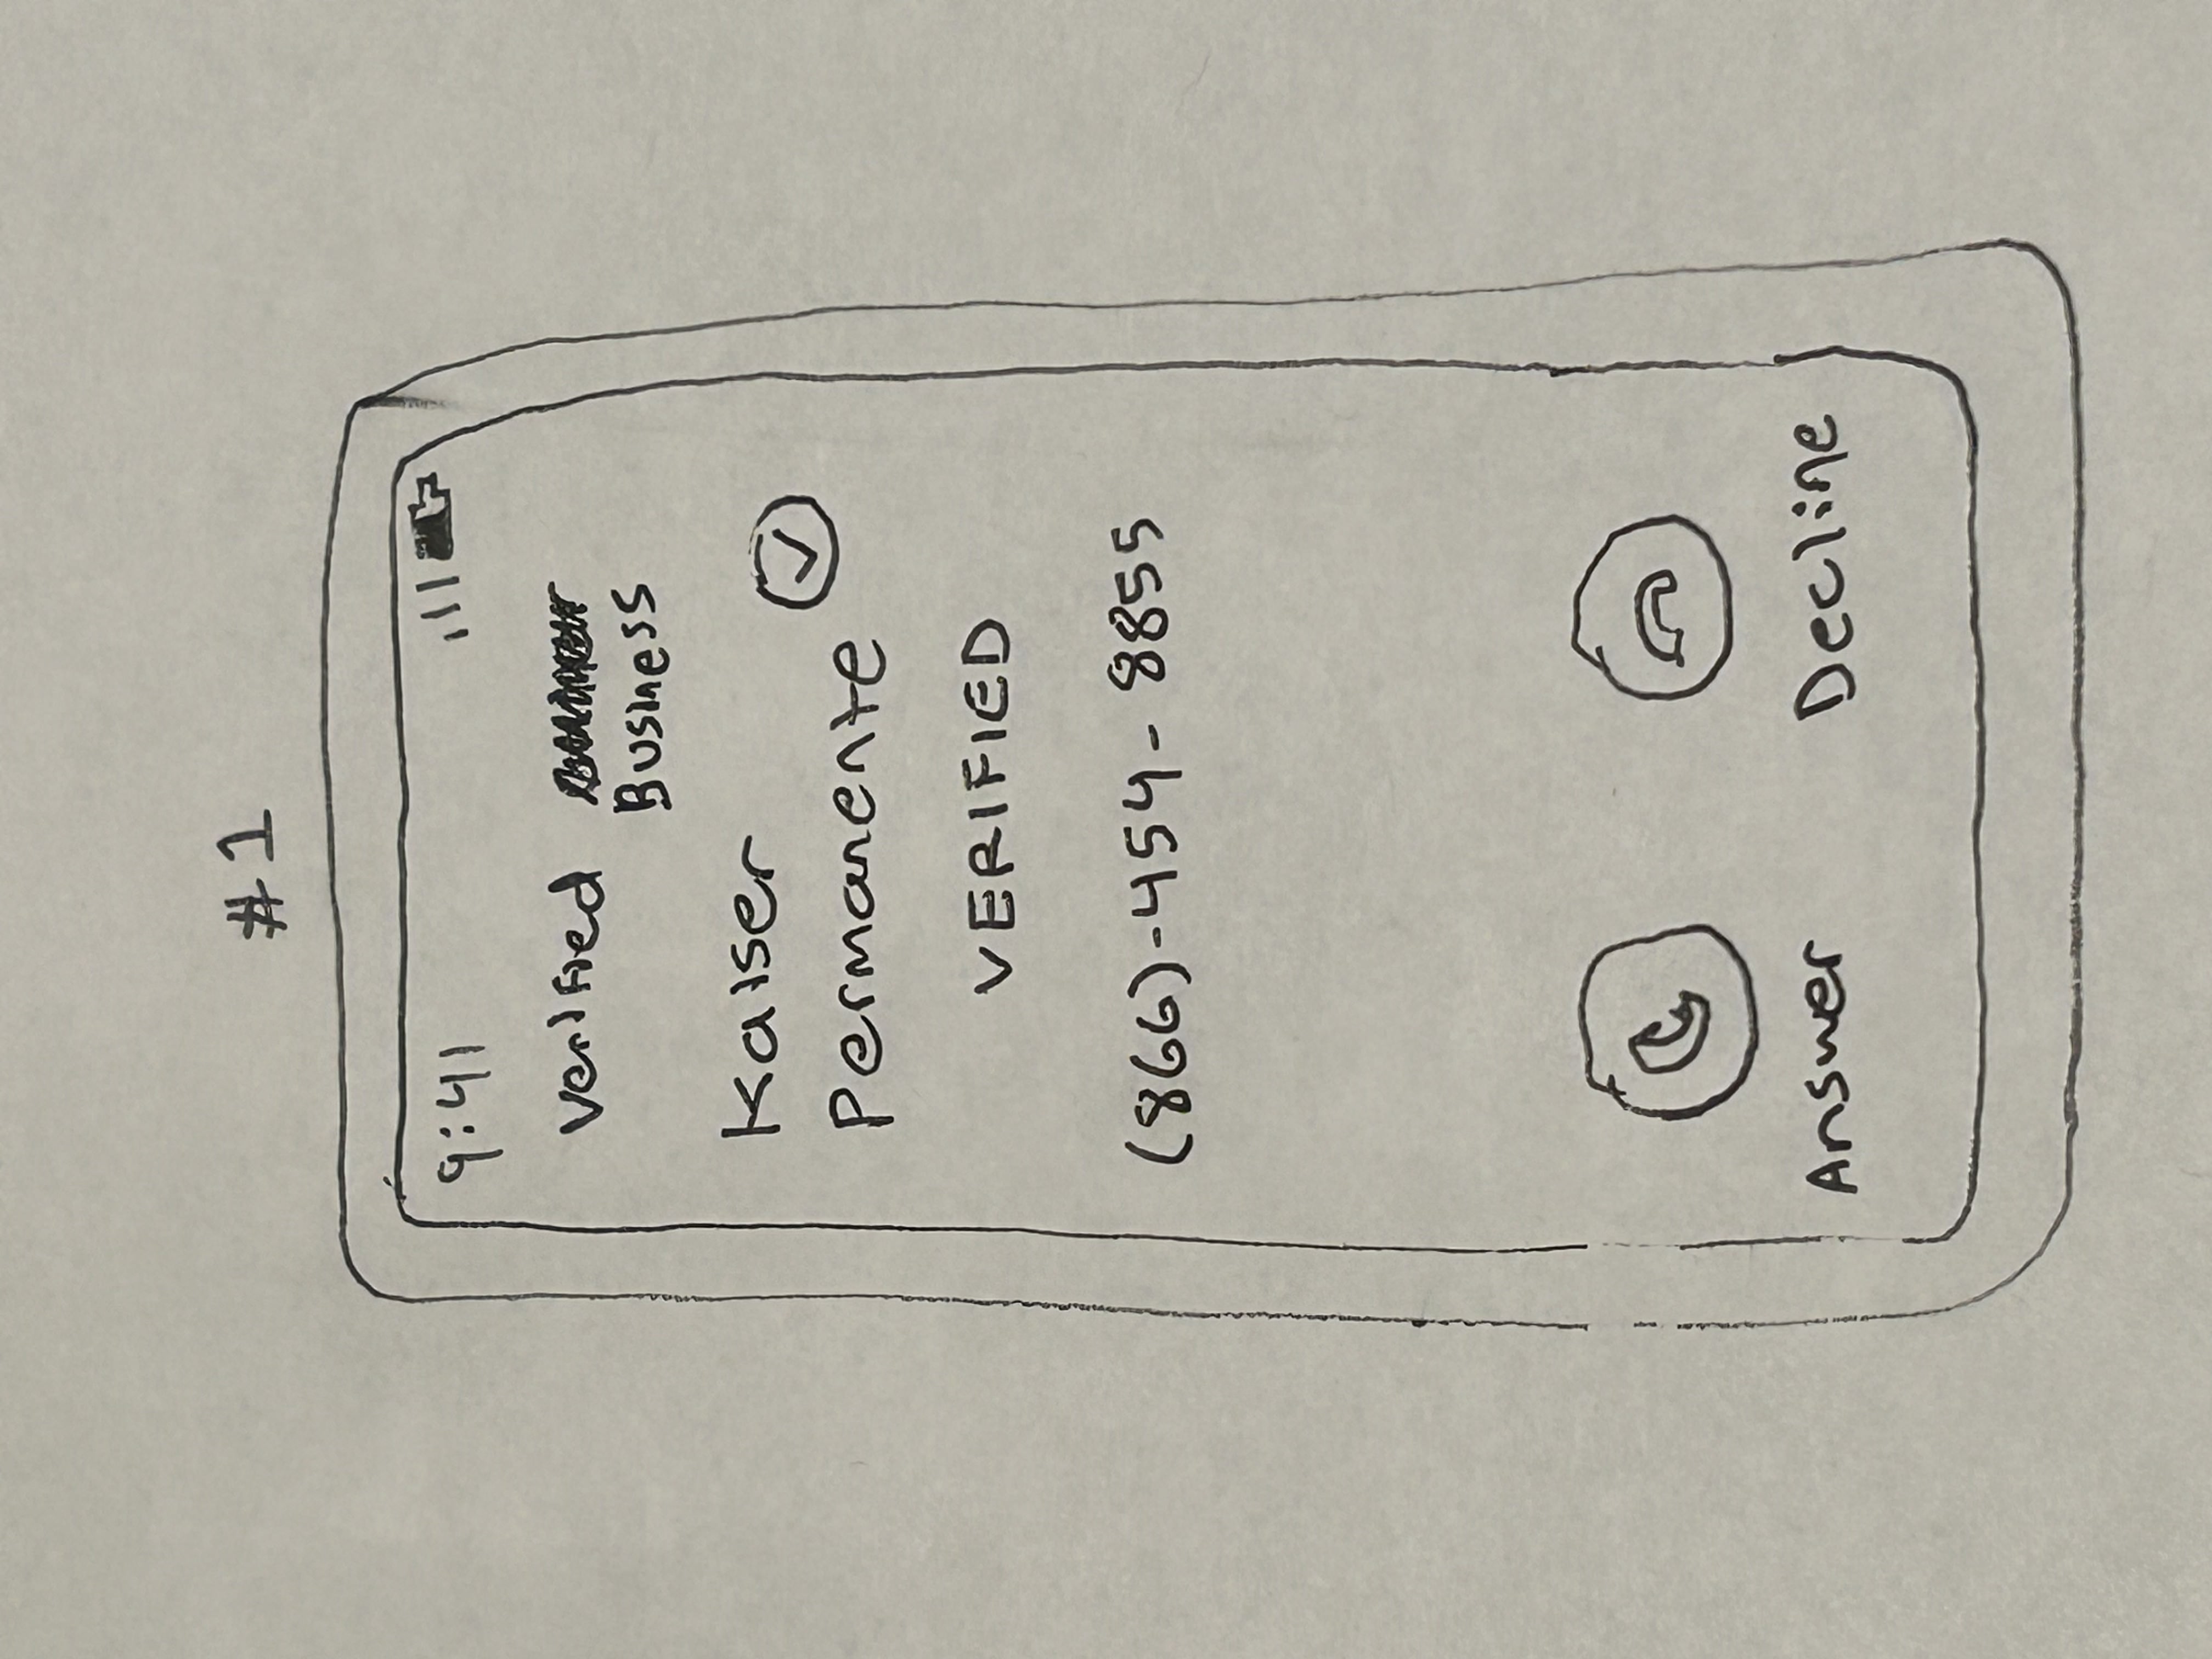 #1
9:41
Verified
Business
Kaiser
Permanente
VERIFIED
(866)-454-8855
Answer
Decline